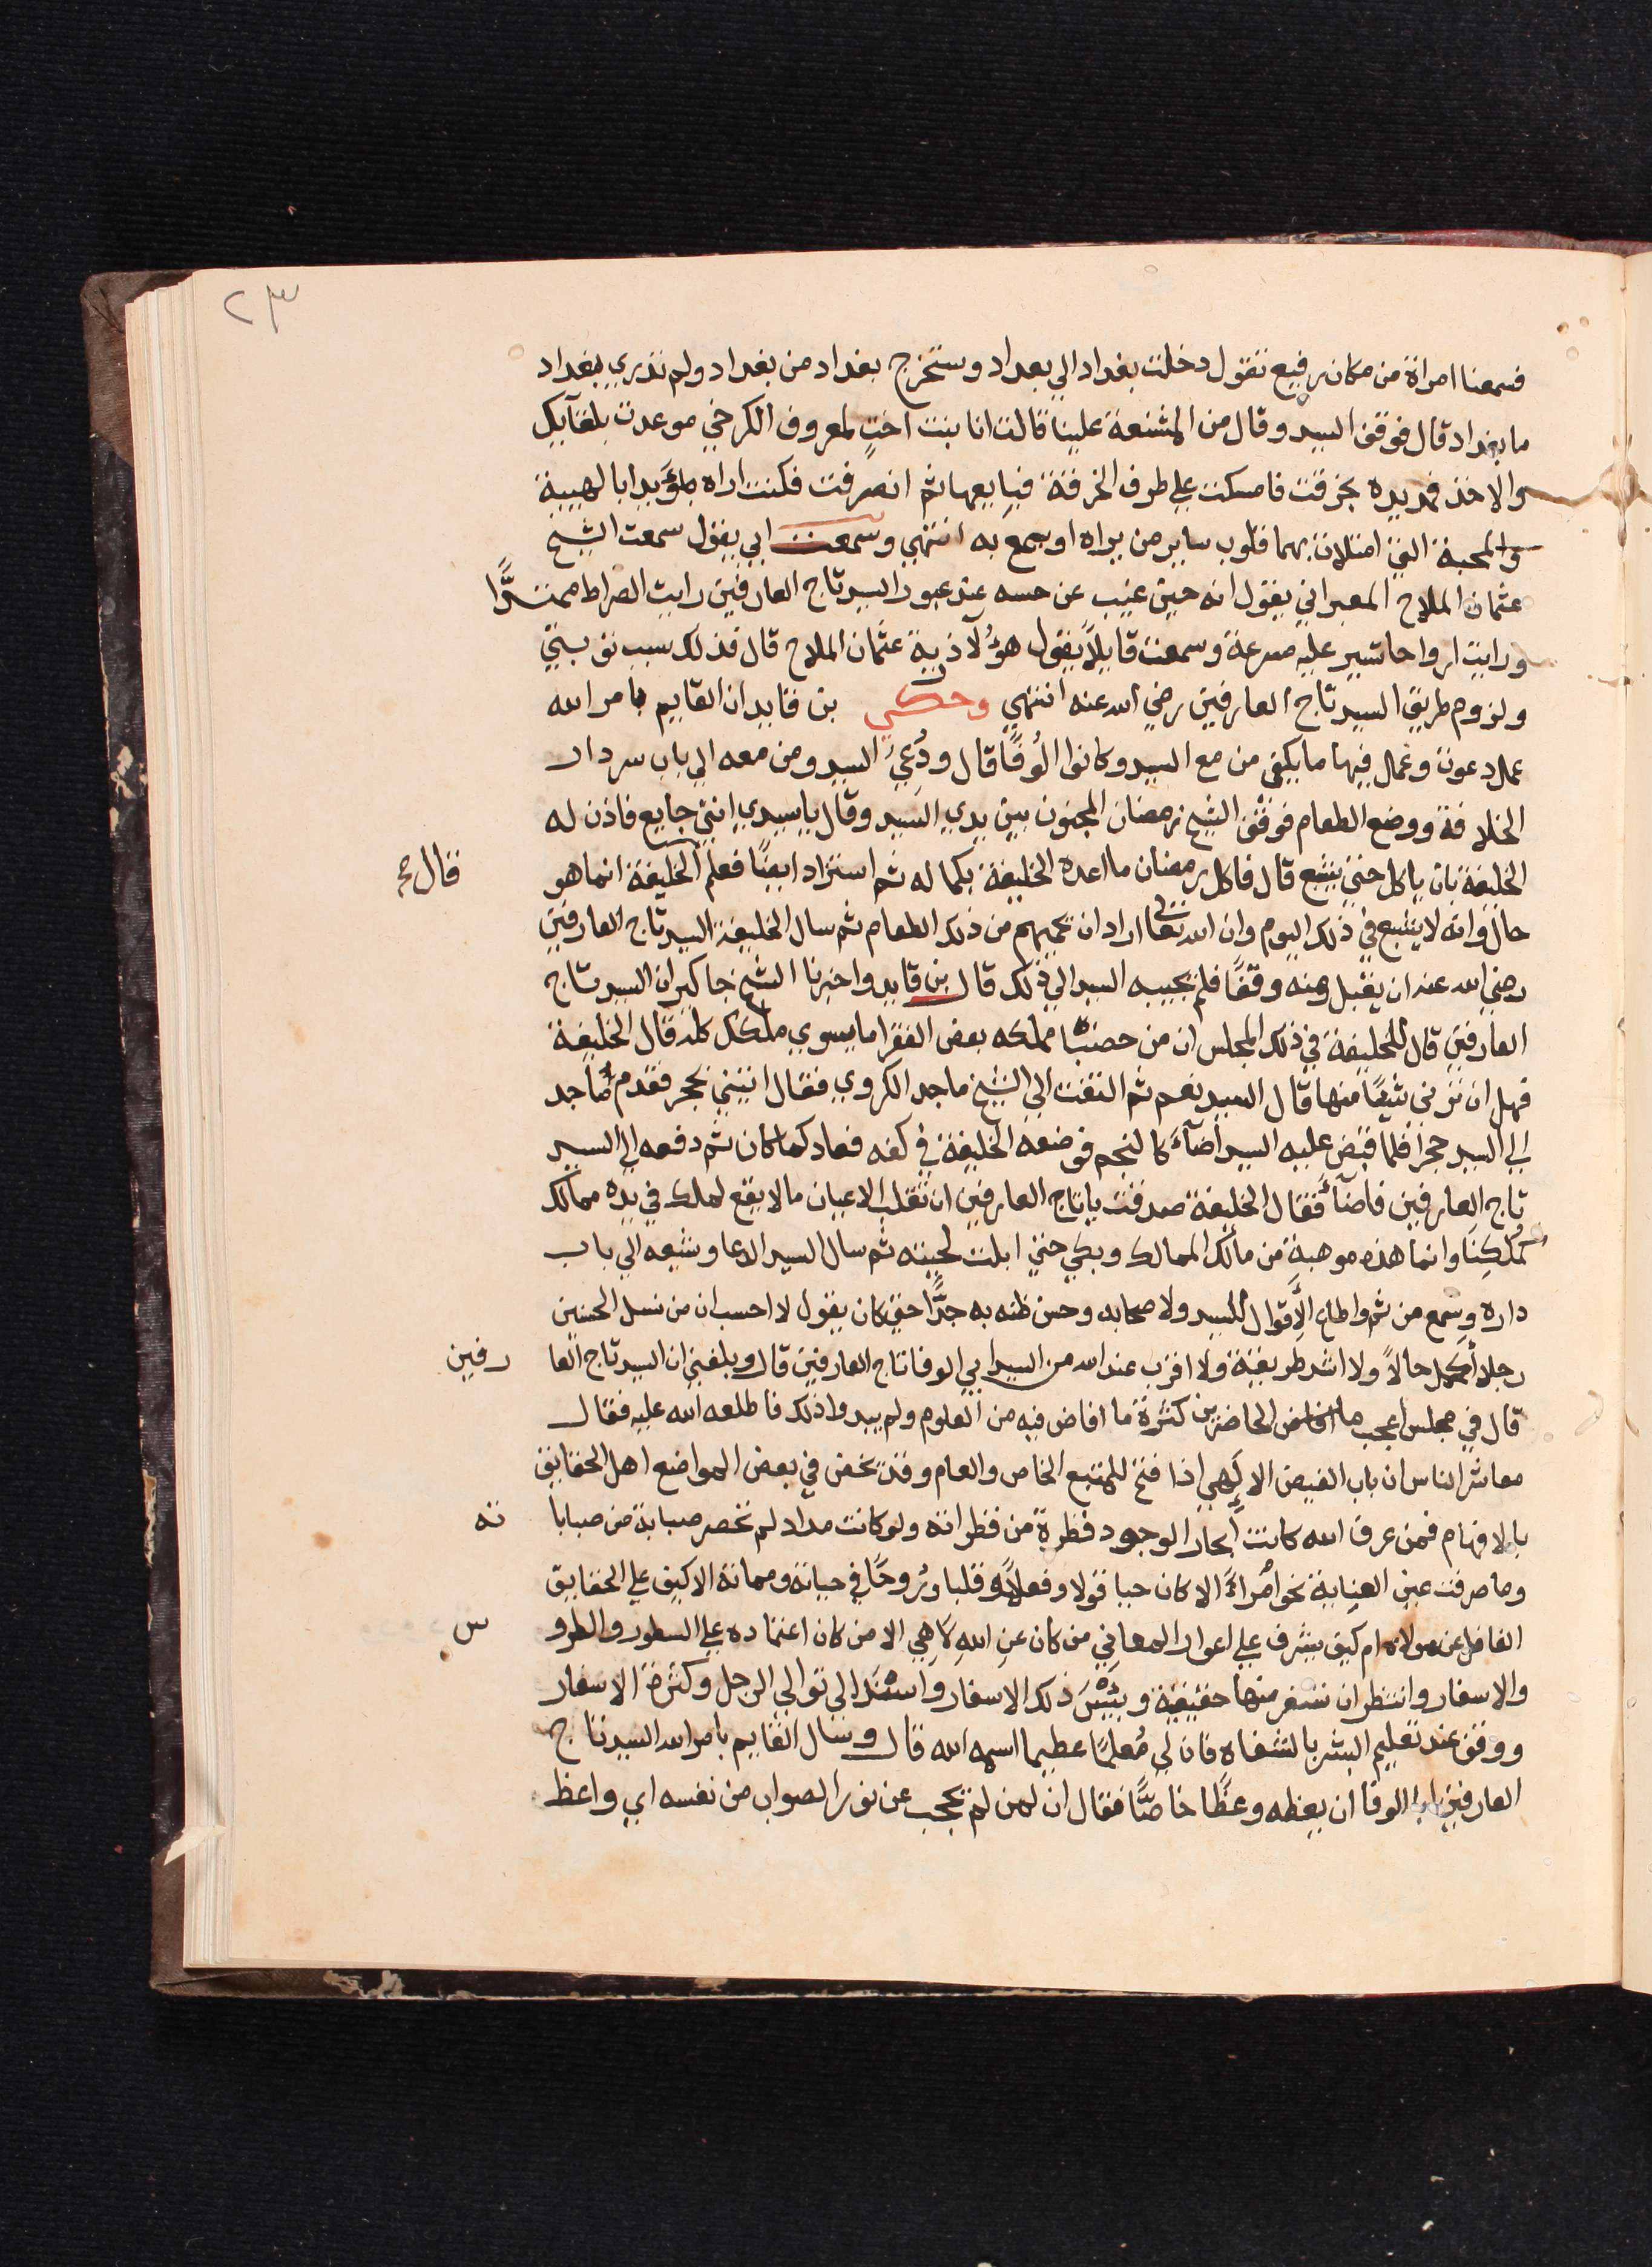 ٢٣
فسمعنا امراة من مكان رفيع تقول دخلت بغداد الي بغداد وستخرج بغداد من بغداد ولم تدري بغداد
ما بغداد قال فوقف السيد وقال من المشنعة علينا قالت انا بنت اخت لمعروف الكرخي موعدت بلقآيك
والاخذ فمد يده بخرقت فامسكت علي طرف الخرقة فبايعها ثم انصرفت فكنت اراه مؤيدا بالهيبة
والمحبة التي امتلات بهما قلوب ساير من يراه او يسمع به انتهي وسمعت ابي يقول سمعت الشيخ
عثمان الملاح المعبراني يقول انه حين غيب عن حسه عند عبور السيد تاج العارفين رايت الصراط ممتدًّا
ورايت ارواحا تسير عليه مسرعة وسمعت قايلاً يقول هؤلآ ذرية عثمان الملاح قال فذلك سبب توبتي
ولزوم طريق السيد تاج العارفين رضي الله عنه انتهي وحكي بن قايد ان القايم بامر الله
عمل دعوة وعمل فيها ما يكفي من مع السيد وكانوا الُوفًا قال ودُعِيَ السيد ومن معه الي باب سردار
الخلافة ووضع الطعام فوقف الشيخ رمضان المجنون بين يدي السيد وقال يا سيدي انني جايع فاذن له
الخليفة بان ياكل حتي يشبع قال فاكل رمضان ما اعده الخليفة بكماله ثم استزاد ايضًا فعلم الخليفة انما هو
قال
حال وانه لا يشبع في ذلك اليوم وان الله تعالي اراد ان يحميهم من ذلك الطعام ثم سال الخليفة السيد تاج العارفين
رضي الله عنه ان يقبل منه وقفًا فلم يجيبه السيد الي ذلك قال بن قايد واخبرنا الشيخ جاكير ان السيد تاج
العارفين قال للخليفة في ذلك المجلس ان من حصتنا مملكه بعض الفقرا ما يسوي ملكك كله قال الخليفة
فهل ان تريني شيًا منها قال السيد نعم ثم التفت الي الشيخ ماجد الكروي فقال ايتيني بحجر فقدم ماجد
الي السيد حجرًا فلما قبض عليه السيد اضآءَ كالنجم فوضعه الخليفة في كفه فعاد كما كان ثم دفعه الي السيد
تاج العارفين فاضآءَ فقال الخليفة صدقت يا تاج العارفين ان تقلب الاعيان ما لا يقع لملك في يده ممالك
كمُلكِنا وانما هذه موهبة من مالك الممالك وبكي حتي ابلت لحيته ثم سال السيد الدعا وشيعه الي باب
داره وسمع من ثم واطاع الاقوال للسيد ولاصحابه وحسن ظنه به جدًّا حتي كان يقول لا احسب ان من نسل الحسين
رجلا اكمل حالاً ولا اشد طريقة ولا اقرب عند الله من السيد ابي الوفا تاج العارفين قال وبلغني ان السيد تاج العا
رفين
قال في مجلس اعجب الحاضرين كثرة ما افاض فيه من العلوم ولم يبدوا ذلك فاطلعه الله عليه فقال
معاشر الناس ان باب الفيض الالَهي اذا فتح للمتبع الخاص والعام وقد تخفي في بعض المواضع اهل الحقايق
بالافهام فمن عرف الله كانت ابحار الوجود قطرة من قطراته ولو كانت مدادا لم تحصر صبابة من صبابا
ته
وما صرفت عين العناية نحو امْراءً الا كان حبا قولا وفعلاً وقلبا ورُوحًا في حياته ومماته الا كيف علي الحقايق
الغافل عن مولاه ام كيف يشرف علي اغوار المعاني من كان عنِ اللهِ لاهِي الا من كان اعتماده علي السطور والطرو
س
والاسفار وانتظر ان تسفر منها حقيقية ويئِسَ ذلك الاسفار واسْتَنَدَ الي توالي الرجل وكثرة الاسفار
ووقف عند تعليم البشر بالشفاه فان لي مُعلمًا عظيما اسمه الله قال وسال القايم بامر الله السيد تاج
العارفين ابا الوفا ان يعظه وعظًا خاصًّا فقال ان لمن لم يحجب عن نور الصواب من نفسه اي واعظ